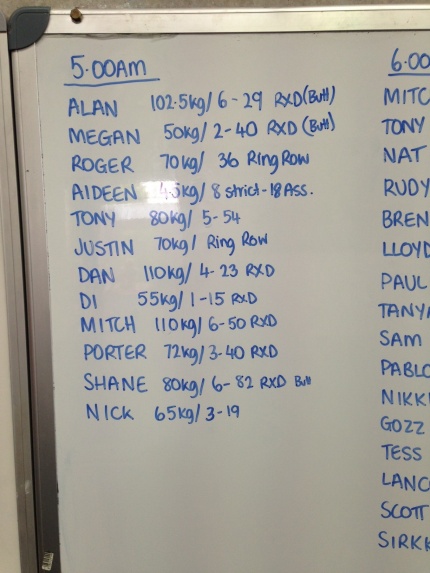 5:00AM
ALAN 102.5kg/ 6-29 RXD (Butt)
MEGAN 50kg/ 2-40 RXD (Butt)
ROGER 70kg/ 36 Ring Row
AIDEEN 45kg/ 8 strict-18 Ass.
TONY 80kg/ 5-54
JUSTIN 70kg/ Ring Row
DAN 110kg/ 4-23 RXD
DI 55kg/ 1-15 RXD
MITCH 110kg/ 6-50 RXD
PORTER 72kg/ 3-40 RXD
SHANE 80kg/ 6-82 RXD Butt
NICK 65kg/ 3-19
6:00
MITC
TONY
NAT
RUDY
BREN
LLOYD
PAUL
TANYA
SAM
PABLO
NIKKI
GOZZ
TESS
LANC
SCOTT
SIRKK